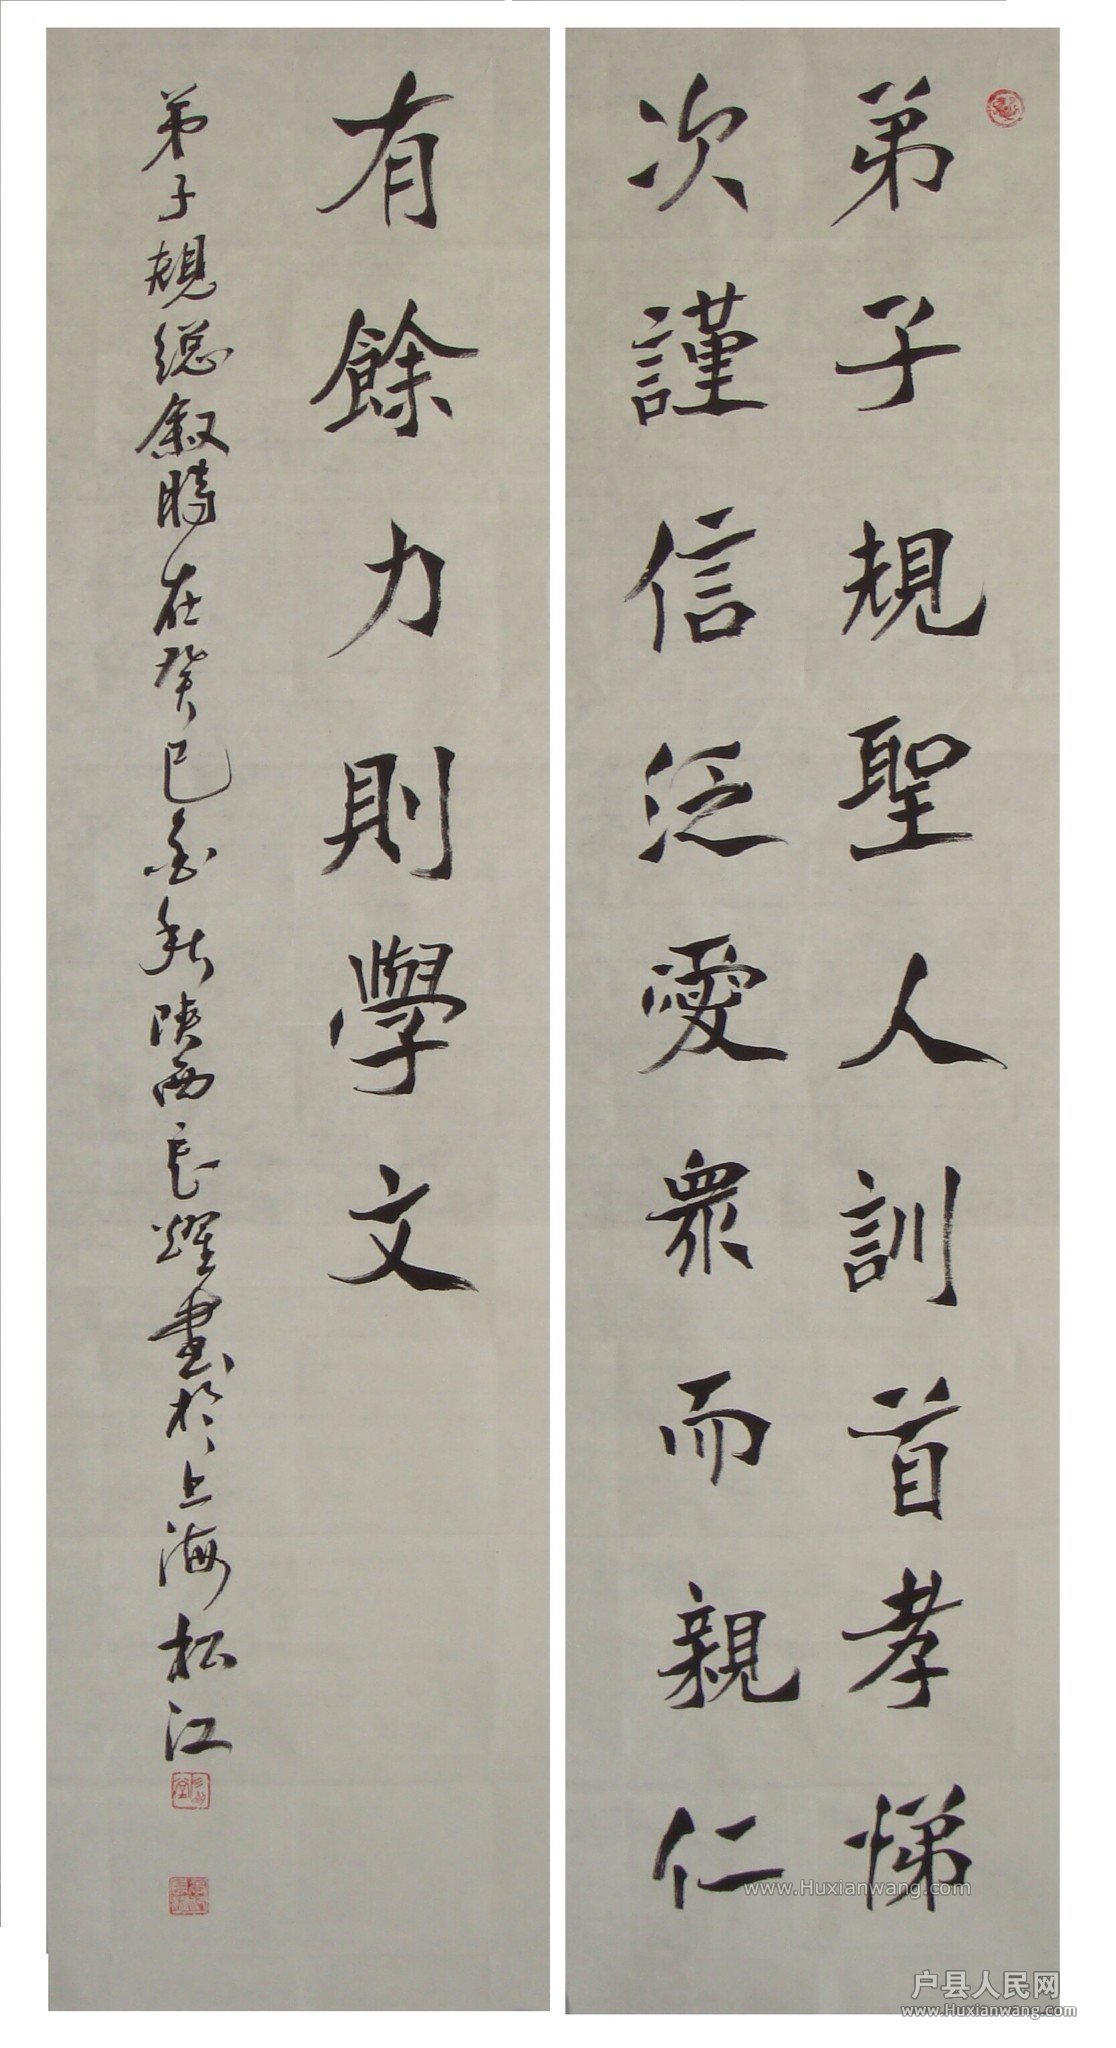 弟子規聖人訓首孝悌
次謹信泛愛衆而親仁
有餘力則學文
弟子規總敘時在癸巳金秋陝西長躍書於上海松江
www.Huxianwang.com
户县人民网
www.Huxianwang.com